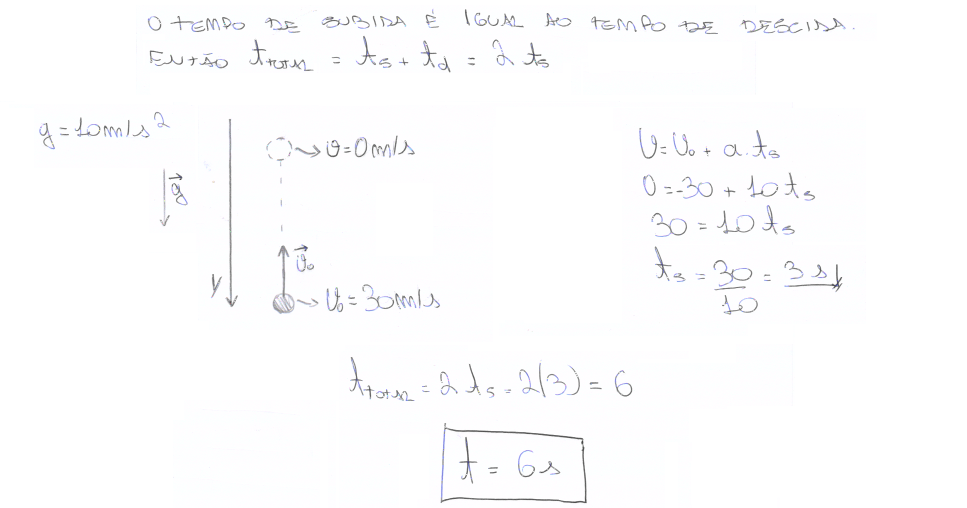 O TEMPO DE SUBIDA É IGUAL AO TEMPO DE DESCIDA.
ENTÃO t_TOTAL = t_s + t_d = 2 t_s
g = 10 m/s²
g⃗
y
v = 0 m/s
v⃗₀
v₀ = 30 m/s
v = v₀ + a.t_s
0 = -30 + 10 t_s
30 = 10 t_s
t_s = 30/10 = 3 s
t_TOTAL = 2 t_s = 2(3) = 6
t = 6 s